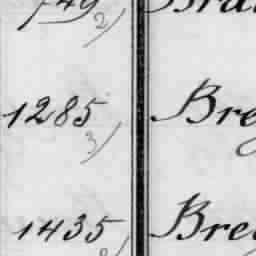 749 2)
1285 3) Bre
1435 Bre